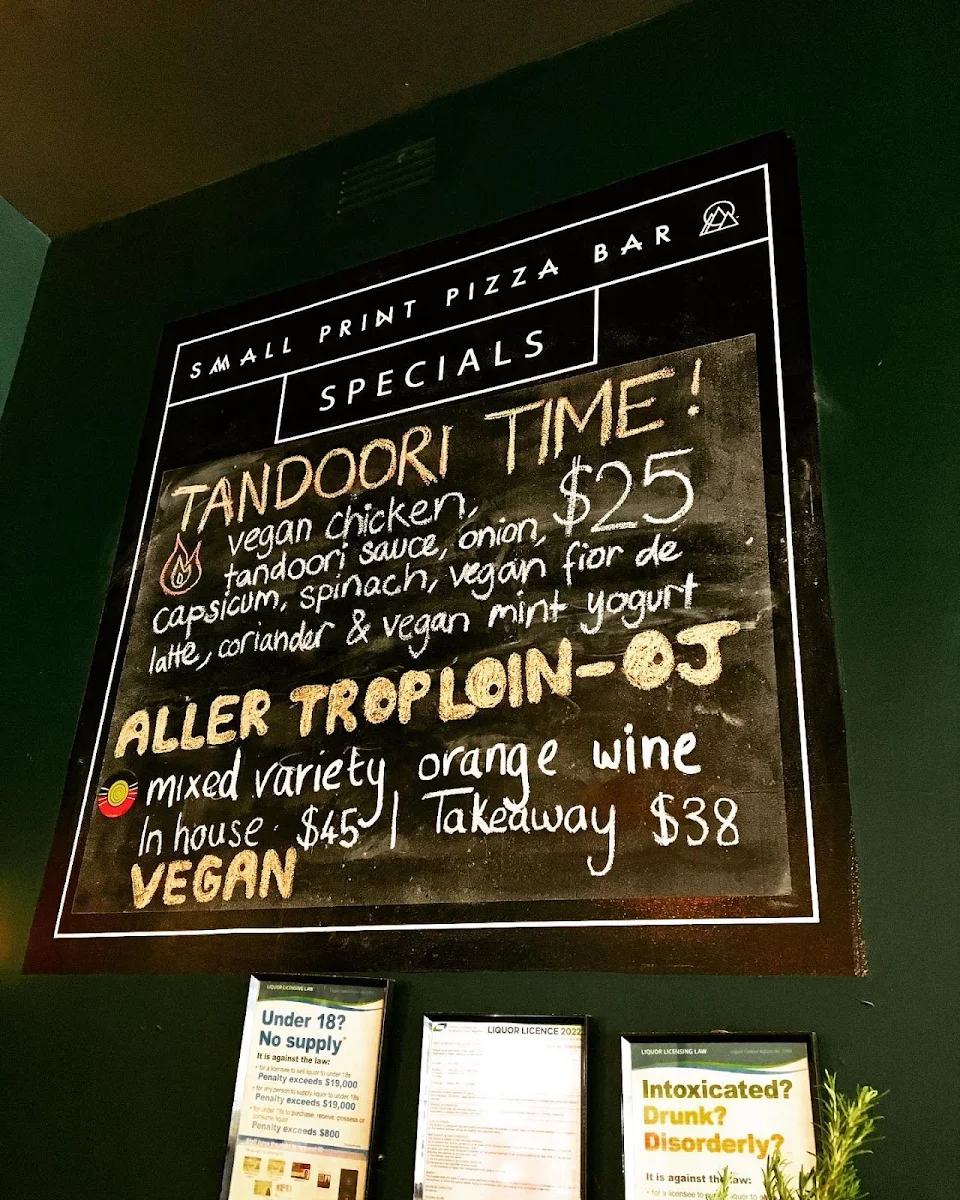 SMALL PRINT PIZZA BAR
SPECIALS
TANDOORI TIME!
vegan chicken, $25
tandoori sauce, onion,
capsicum, spinach, vegan fior de
latte, coriander & vegan mint yogurt
ALLER TROPLOIN-OJ
mixed variety orange wine
In house $45 | Takeaway $38
VEGAN
LIQUOR LICENSING LAW
Under 18?
No supply
It is against the law:
• for a licensee to sell liquor to under 18s
Penalty exceeds $19,000
• for any person to supply liquor to under 18s
Penalty exceeds $19,000
• for under 18s to purchase, receive, possess or
consume liquor
Penalty exceeds $800
LIQUOR LICENCE 2022
LIQUOR LICENSING LAW
Intoxicated?
Drunk?
Disorderly?
It is against the law: